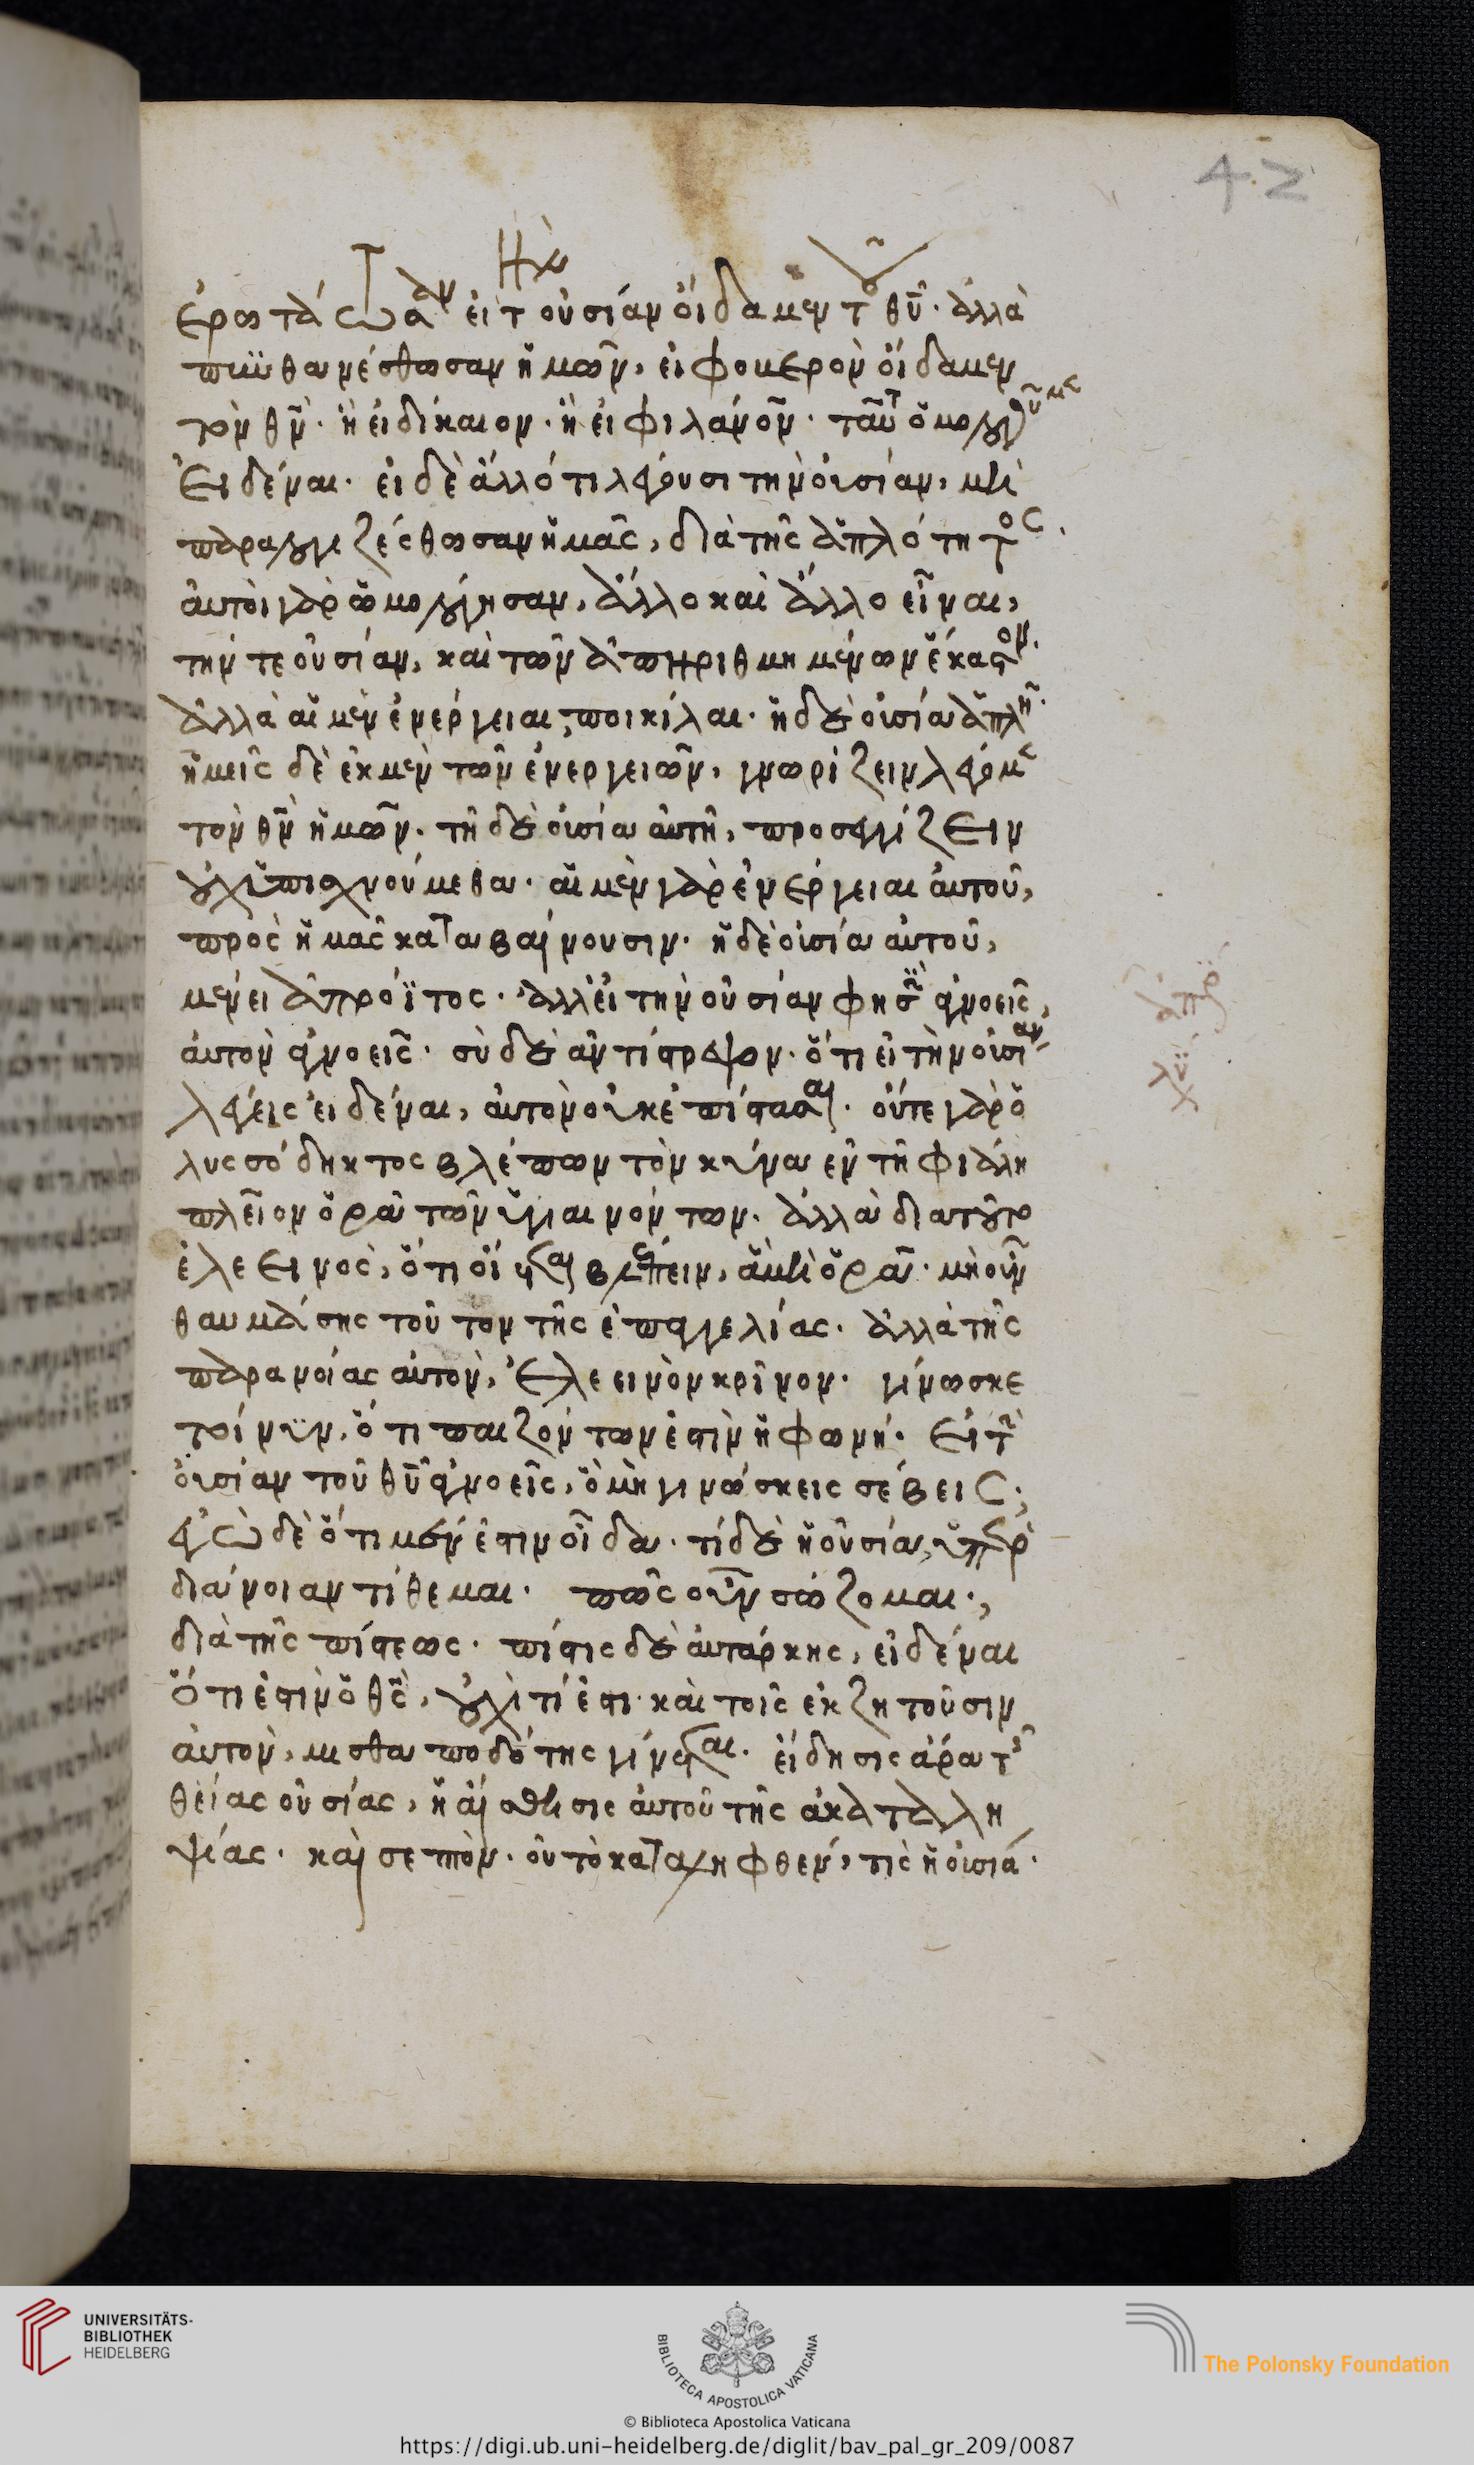 42
ἐρωτάτωσαν εἰ τ οὐσίαν οἴδαμεν τοῦ θῦ. ἀλλὰ
πυνθανέσθωσαν ἡμῶν, εἰ φοβερὸν οἴδαμεν
τὸν θν. ἢ εἰ δίκαιον. ἢ εἰ φιλάνον. ταῦτ ὁμολογοῦμεν
εἰδέναι. εἰ δὲ ἄλλό τι λέγουσι τὴν οὐσίαν, μὴ
παραλογιζέσθωσαν ἡμᾶς, διὰ τῆς ἁπλότητος.
αὐτοὶ γὰρ ὡμολόγησαν, ἄλλο καὶ ἄλλο εἶναι,
τήν τε οὐσίαν, καὶ τῶν ἀπηριθμημένων ἕκαστον.
ἀλλὰ αἱ μὲν ἐνέργειαι, ποικίλαι. ἡ δὲ οὐσία ἁπλῆ.
ἡμεῖς δὲ ἐκ μὲν τῶν ἐνεργειῶν, γνωρίζειν λέγομεν
τὸν θν ἡμῶν. τῇ δὲ οὐσία αὐτῇ, προσεγγίζειν
οὐχ ὑπισχνούμεθα. αἱ μὲν γὰρ ἐνέργειαι αὐτοῦ,
πρὸς ἡμᾶς καταβαίνουσιν. ἡ δὲ οὐσία αὐτοῦ,
μένει ἀπρόϊτος. ἀλλ' εἰ τὴν οὐσίαν φησὶν ἀγνοεῖς,
αὐτὸν ἀγνοεῖς. σὺ δὲ ἀντίστρεψον. ὅτι εἰ τὴν οὐσίαν
λέγεις εἰδέναι, αὐτὸν οὐκ ἐπίστασαι. οὔτε γὰρ ὁ
λυσσόδηκτος βλέπων τὸν κύνα ἐν τῇ φιάλη
πλεῖον ὁρᾶ τῶν ὑγιαινόντων. ἀλλὰ διατοῦτο
ἐλεεινὸς, ὅτι οἴεται βλέπειν, ἃ μὴ ὁρᾶ. μὴ οὖν
θαυμάσης τοῦτον τῆς ἐπαγγελίας. ἀλλὰ τῆς
παρανοίας αὐτὸν, ἐλεεινὸν κρῖνον. γίνωσκε
τοίνυν, ὅτι παιζόντων ἐστὶν ἡ φωνή. εἰ τὴν
οὐσίαν τοῦ θῦ ἀγνοεῖς, ὃ μὴ γινώσκεις σέβεις;
ἐγὼ δὲ ὅτι μέν ἐστιν οἶδα. τί δὲ ἡ οὐσία, ὑπὲρ
διάνοιαν τίθεμαι. πῶς οὖν σώζομαι;
διὰ τῆς πίστεως. πίστις δὲ αὐτάρκης, εἰδέναι
ὅτι ἐστὶν ὁ θς, οὐχὶ τί ἐστι. καὶ τοῖς ἐκζητοῦσιν
αὐτὸν, μισθαποδότης γίνεται. εἴδησις ἄρα τῆς
θείας οὐσίας, ἡ αἴσθησις αὐτοῦ τῆς ἀκαταλη
ψίας. καὶ σεπτὸν. οὐ τὸ καταληφθὲν, τίς ἡ οὐσία.
UNIVERSITÄTS-
BIBLIOTHEK
HEIDELBERG
BIBLIOTECA APOSTOLICA VATICANA
The Polonsky Foundation
© Biblioteca Apostolica Vaticana
https://digi.ub.uni-heidelberg.de/diglit/bav_pal_gr_209/0087